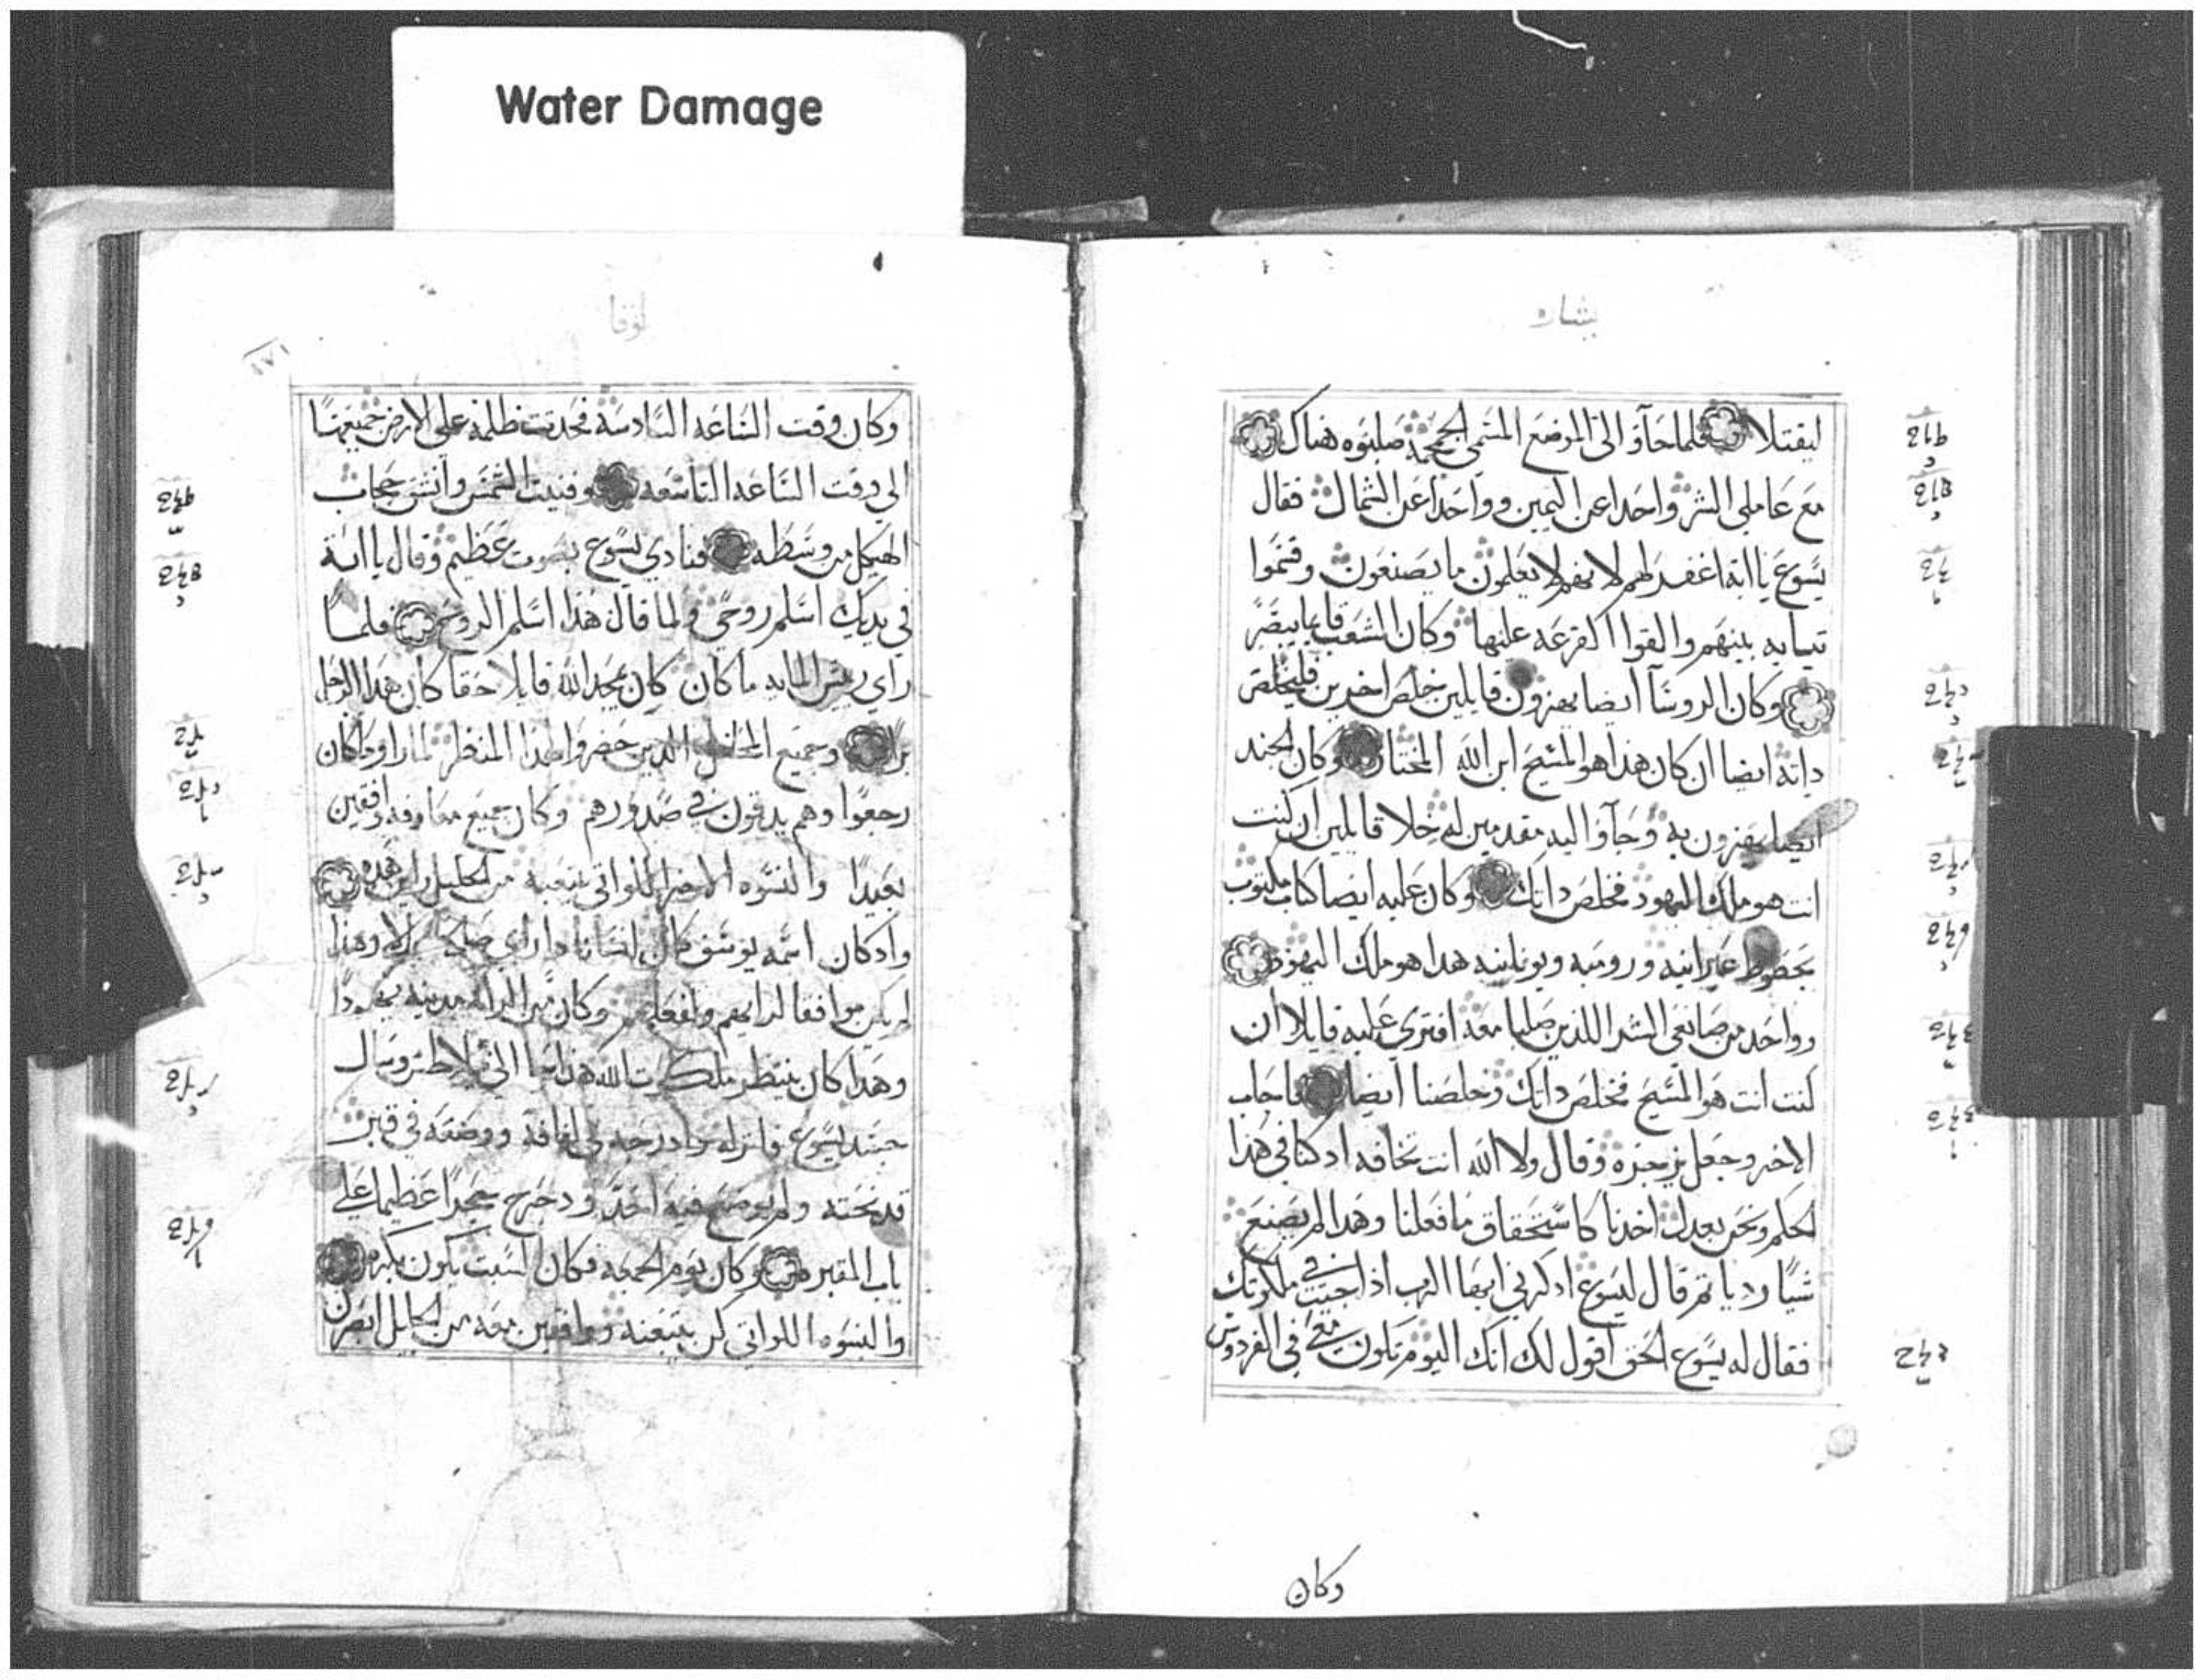 Water Damage
بشاره
ليقتلا فلما جآؤ الى الموضع المسمى الجمجمه صلبوه هناك
مع عاملي الشر واحدا عن اليمين وواحدا عن الشمال فقال
يسوع يا ابة اغفر لهم لانهم لا يعلمون ما يصنعون وقسموا
تيابه بينهم والقوا القرعه عليها وكان الشعب قايما يبصر
وكان الروسآ ايضا يهزون قايلين خلص اخرين فليخلص
داته ايضا ان كان هذا هو المسيح ابن الله المختار وكان الجند
ايضا يهزون به وجآؤا اليه مقدمين له خلا قايلين ان كنت
انت هو ملك اليهود فخلص داتك وكان عليه ايضا كتاب مكتوب
بخطوط عبرانيه ورومية ويونانيه هدا هو ملك اليهود
وواحد من صانعي الشر اللذين صلبا معه افترى عليه قايلا ان
كنت انت هو المسيح فخلص داتك وخلصنا ايضا فاجاب
الاخر وجعل يزجره وقال ولا الله انت تخافه اد كنا في هذا
الحكم ونحن بعدل اخدنا كاستحقاق ما فعلنا وهدا لم يصنع
شيًا رديا تم قال ليسوع ادكرني ايها الرب اذا جيت في ملكوتك
فقال له يسوع الحق اقول لك انك اليوم تكون معي في الفردوس
وكان
لوقا
١٧١
وكان وقت الساعه السادسة فحدتت ظلمة على الارض جميعها
الى وقت الساعه التاسعه وفنيت الشمس وانشق حجاب
الهيكل من وسطه فنادي يسوع بصوت عظيم وقال يا ابة
في يديك اسلم روحي ولما قال هذا اسلم الروح فلما
راي ريس المايه ما كان كان يمجد الله قايلا حقا كان هدا الرجل
برًا وجميع المحافل الدين حضروا لهذا المنظر لما راوا ما كان
رجعوا وهم يدقون في صدورهم وكان جميع معارفه واقفين
بعيدًا والنسوه الاخر اللواتي يتبعنه من الجليل راين هده
وادكان اسمه يوسف كان انسانا دا راي صالحًا بارًا وهذا
لم يكن موافقا لرايهم ولفعلهم وكان من الرامه مدينة يهودا
وهذا كان ينتظر ملكوت الله هذا اتى الى بيلاطس وسال
جسد يسوع فانزله وادرجه في لفافة ووضعه في قبر
قد نحته ولم يوضع فيه احد ودحرج حجرًا عظيما على
باب المقبره وكان يوم الجمعه فكان السبت يكون بكره
والنسوه اللواتي كن يتبعنه ووافين معه من الجليل ابصرن